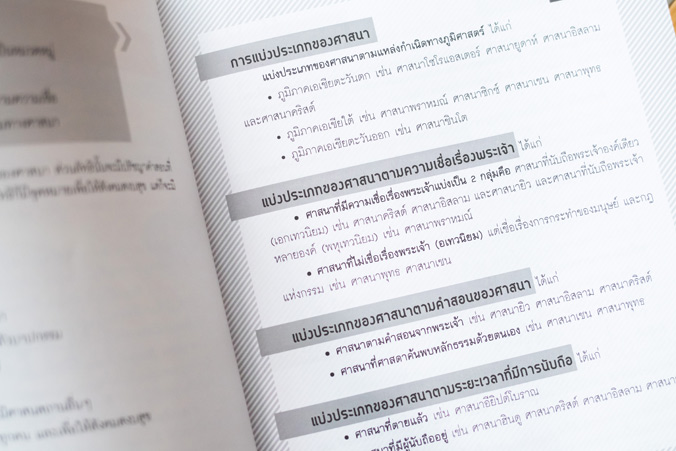 ป็นหมวดหมู่
ามความเชื่อ
ทางศาสนา
การแบ่งประเภทของศาสนา
แบ่งประเภทของศาสนาตามแหล่งกำเนิดทางภูมิศาสตร์ ได้แก่
• ภูมิภาคเอเชียตะวันตก เช่น ศาสนาโซโรแอสเตอร์ ศาสนายูดาห์ ศาสนาอิสลาม
และศาสนาคริสต์
• ภูมิภาคเอเชียใต้ เช่น ศาสนาพราหมณ์ ศาสนาซิกข์ ศาสนาเชน ศาสนาพุทธ
• ภูมิภาคเอเชียตะวันออก เช่น ศาสนาชินโต
แบ่งประเภทของศาสนาตามความเชื่อเรื่องพระเจ้า ได้แก่
• ศาสนาที่มีความเชื่อเรื่องพระเจ้าแบ่งเป็น 2 กลุ่มคือ ศาสนาที่นับถือพระเจ้าองค์เดียว
(เอกเทวนิยม) เช่น ศาสนาคริสต์ ศาสนาอิสลาม และศาสนายิว และศาสนาที่นับถือพระเจ้า
หลายองค์ (พหุเทวนิยม) เช่น ศาสนาพราหมณ์
• ศาสนาที่ไม่เชื่อเรื่องพระเจ้า (อเทวนิยม) แต่เชื่อเรื่องการกระทำของมนุษย์ และกฎ
แห่งกรรม เช่น ศาสนาพุทธ ศาสนาเชน
แบ่งประเภทของศาสนาตามคำสอนของศาสนา ได้แก่
• ศาสนาตามคำสอนจากพระเจ้า เช่น ศาสนายิว ศาสนาอิสลาม ศาสนาคริสต์
• ศาสนาที่ศาสดาค้นพบหลักธรรมด้วยตนเอง เช่น ศาสนาเชน ศาสนาพุทธ
แบ่งประเภทของศาสนาตามระยะเวลาที่มีการนับถือ ได้แก่
• ศาสนาที่ตายแล้ว เช่น ศาสนาอียิปต์โบราณ
ศาสนาที่มีผู้นับถืออยู่ เช่น ศาสนาฮินดู ศาสนาคริสต์ ศาสนาอิสลาม